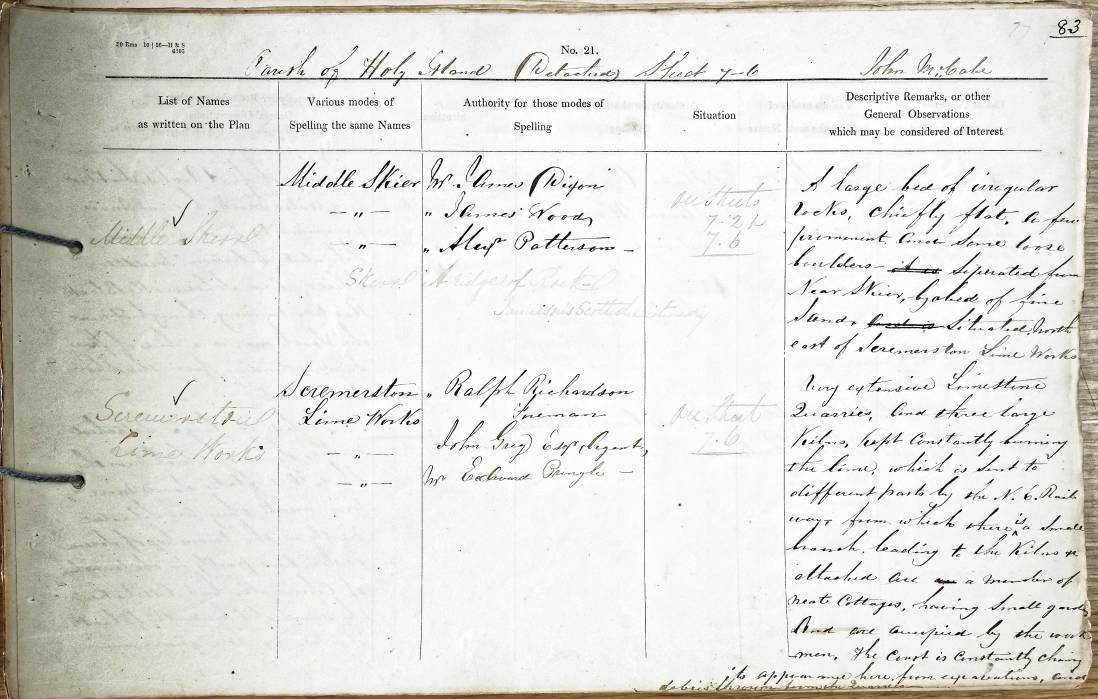 83
No. 21.
Parish of Holy Island (Detached) Sheet 7-6 John McCabe
List of Names
as written on the Plan
Various modes of
Spelling the same Names
Authority for those modes of
Spelling
Situation
Descriptive Remarks, or other
General Observations
which may be considered of Interest
Middle Skerrl
Middle Skier
— " —
— " —
Mr. James Dixon
" James Wood
" Alexr Patterson —
Skerrl A ridge of Rock
Jamieson's Scottish Dictionary
On Sheets
7.2
7.6
A large bed of irregular
rocks, chiefly flat, a few
prominent and some loose
boulders it is Seperated from
Near Skier, by a bed of fine
Sand, and is Situated North
east of Scremerston Lime Works
Scremerston
Lime Works
Scremerston
Lime Works
— " —
— " —
" Ralph Richardson
Foreman
John Grey Esqr, Agent,
Mr Edward Pringle —
On Sheet
7.6
Very extensive Limestone
Quarries, and three large
Kilns, kept Constantly burning
the lime, which is sent to
different parts by the N. E. Rail
way, from which there is a small
branch leading to the Kilns &
attached are a number of
neat Cottages, having small gardens
And are occupied by the work
men. The Coast is Constantly changing
its appearance here, from excavations, and
debris thrown from the Quarries